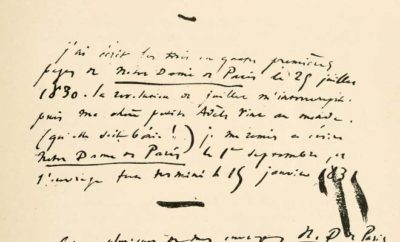 j'ai écrit les trois ou quatre premières
pages de Notre Dame de Paris le 25 juillet
1830. la révolution de juillet m'interrompit.
puis ma chère petite Adèle vint au monde.
(qu'elle soit bénie !) je me remis à écrire
Notre Dame de Paris le 1er septembre, et
l'ouvrage fut terminé le 15 janvier 1831
N. D. de Paris